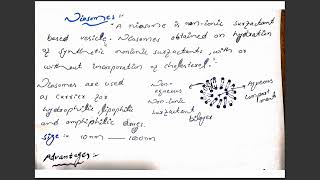 Niosomes:-
"A niosome is non-ionic surfactant
based vesicle. Niosomes obtained on hydration
of synthetic nonionic surfactants, with or
without incorporation of cholesterol."
Niosomes are used as
carrier for
hydrophilic, lipophilic
and amphiphilic drugs.
size:- 10nm — 1000nm
Non-
aqueous
Non-ionic
surfactant
bilayer
Aqueous
compart
ment
Advantages:-